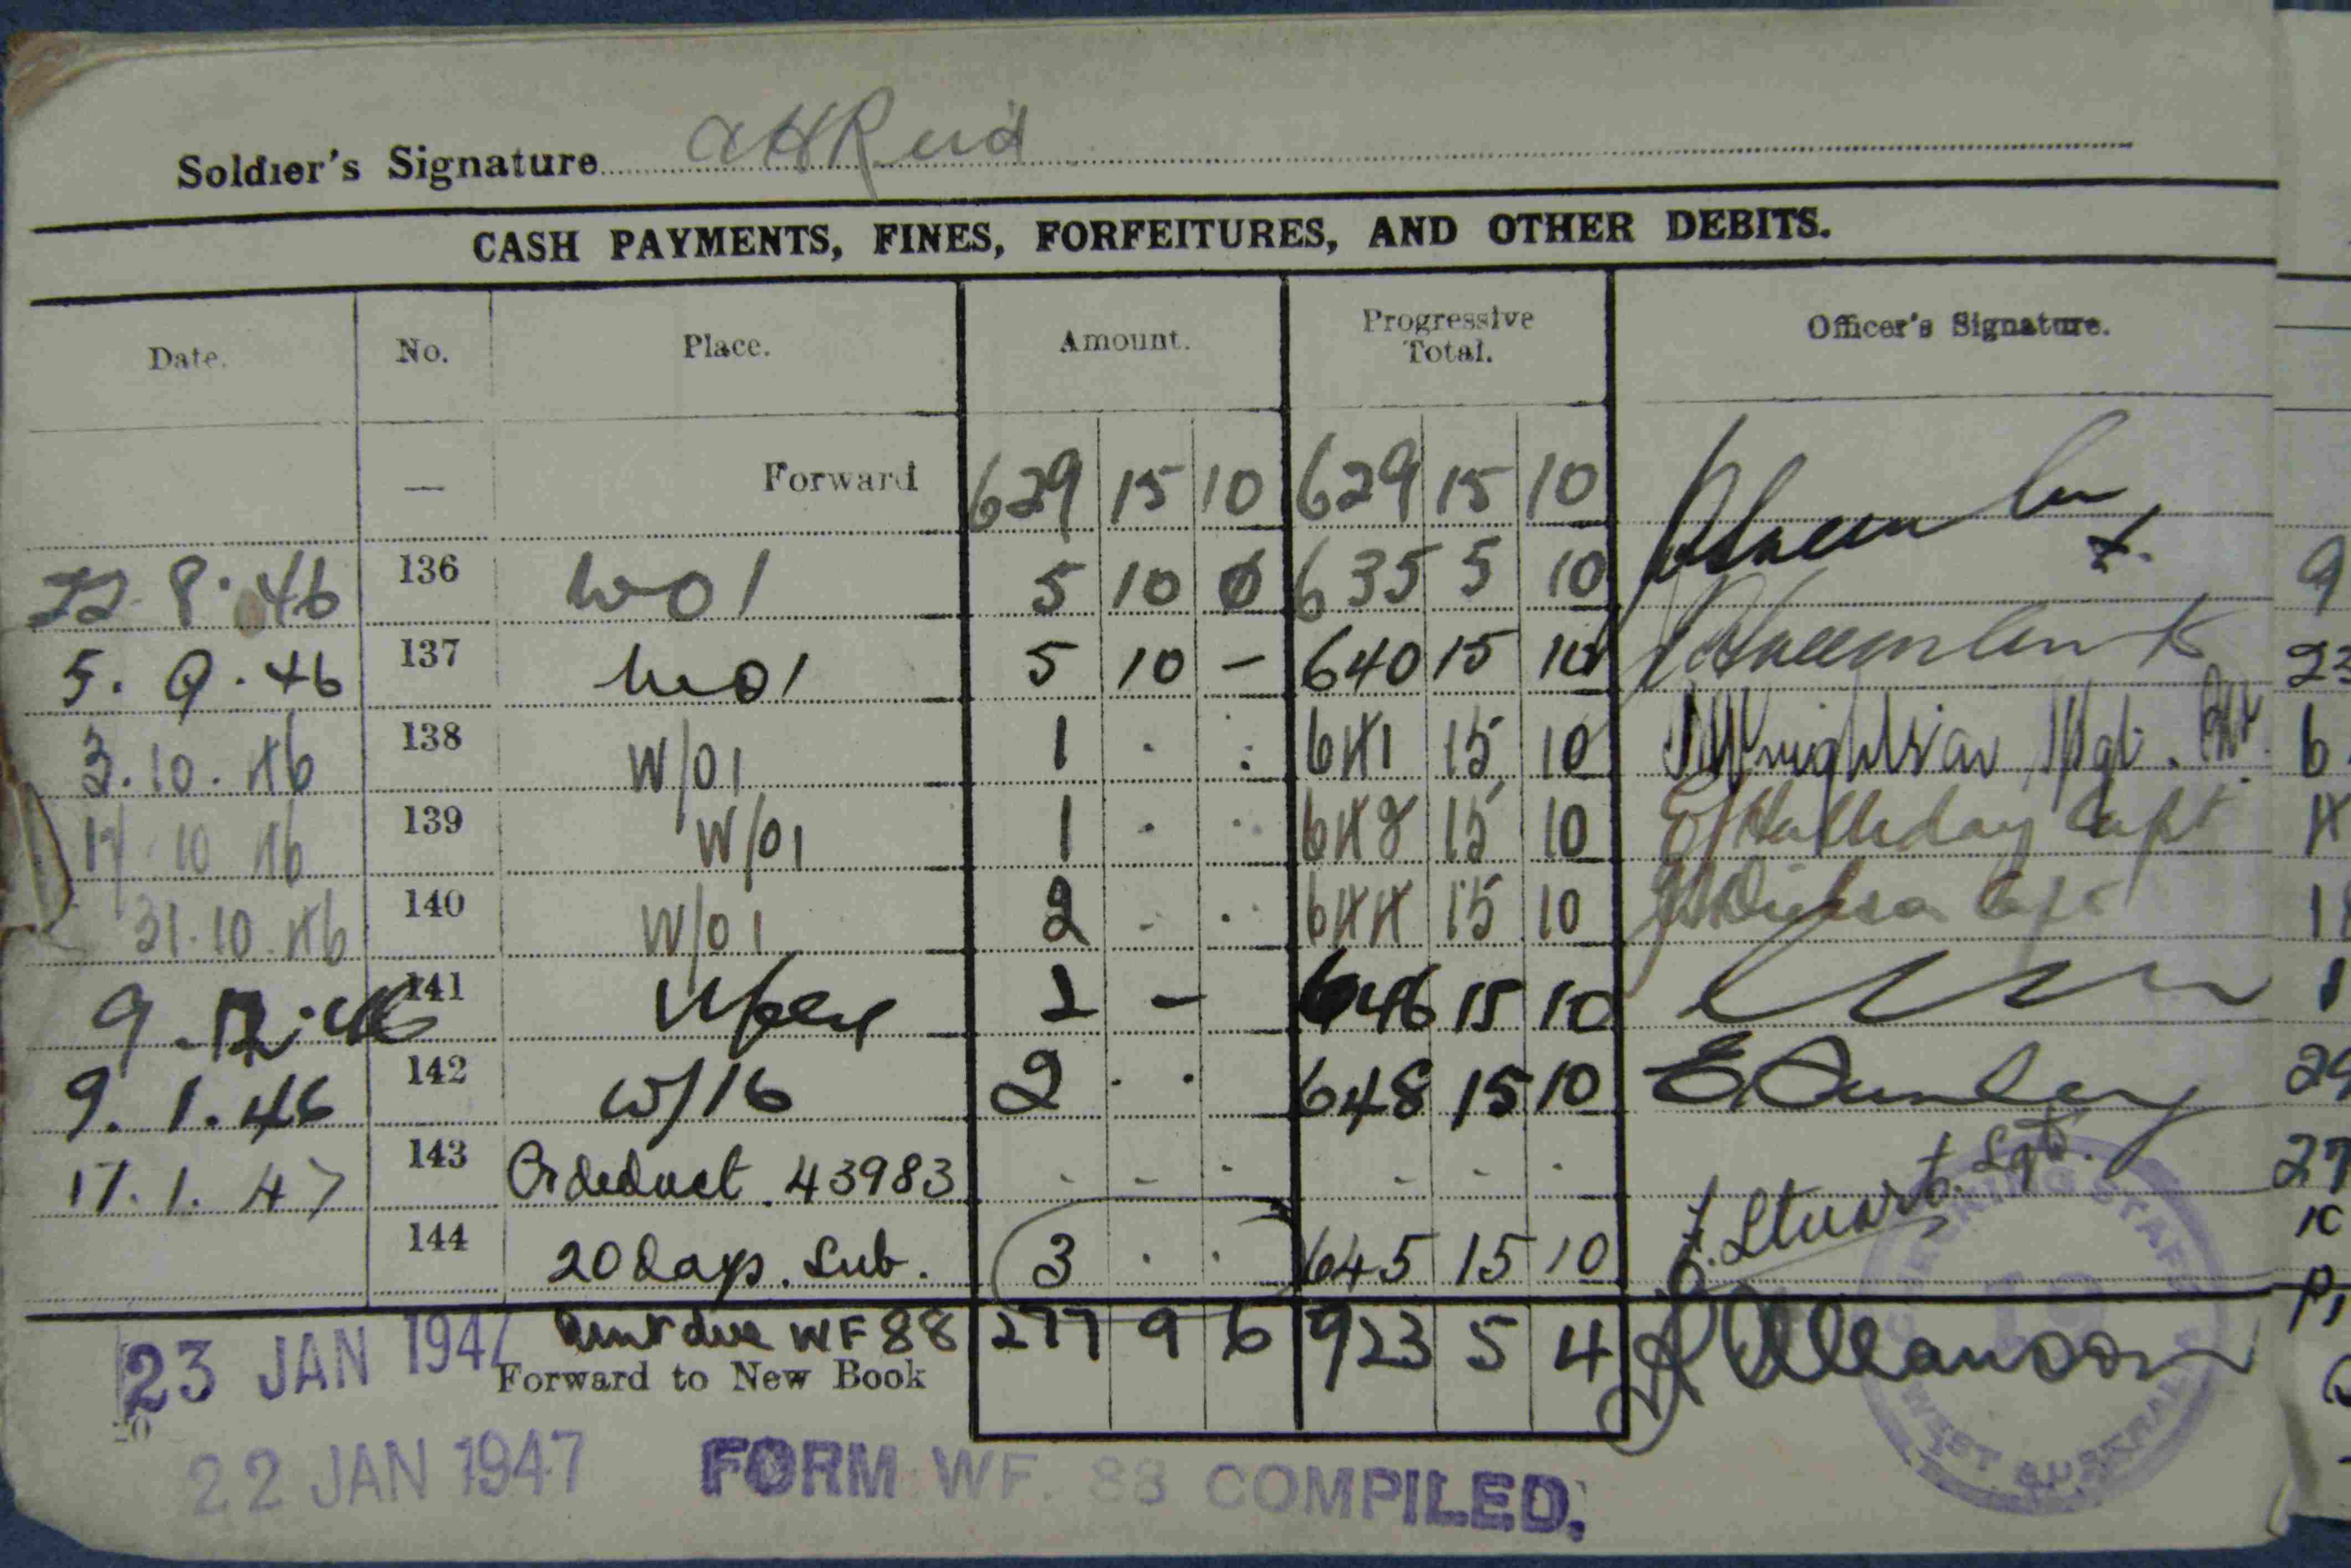 Soldier's Signature AH Reid
CASH PAYMENTS, FINES, FORFEITURES, AND OTHER DEBITS.
Date. No. Place. Amount. Progressive Total. Officer's Signature.
— Forward 629 15 10 629 15 10
22 8. 46 136 WO1 5 10 0 635 5 10
5. 9. 46 137 WO1 5 10 – 640 15 10 9
3. 10. 46 138 W/O1 1 . : 641 15 10 23
17 10 46 139 W/O1 1 . . 642 15 10 E Halliday Capt 6
31. 10. 46 140 W/O1 2 . . 644 15 10 Capt
9. 12. 46 141 2 – 646 15 10
9. 1. 46 142 W/16 2 . . 648 15 10
17. 1. 47 143 Cr deduct. 43983 . – . . – . J. Stuart Sgt. 27
144 20 days. Sub. 3 . . 645 15 10
23 JAN 194 Amt due WF 88 277 9 6 923 5 4
Forward to New Book
22 JAN 1947 FORM WF. 88 COMPILED.
STAFF
WEST AUSTRALIA